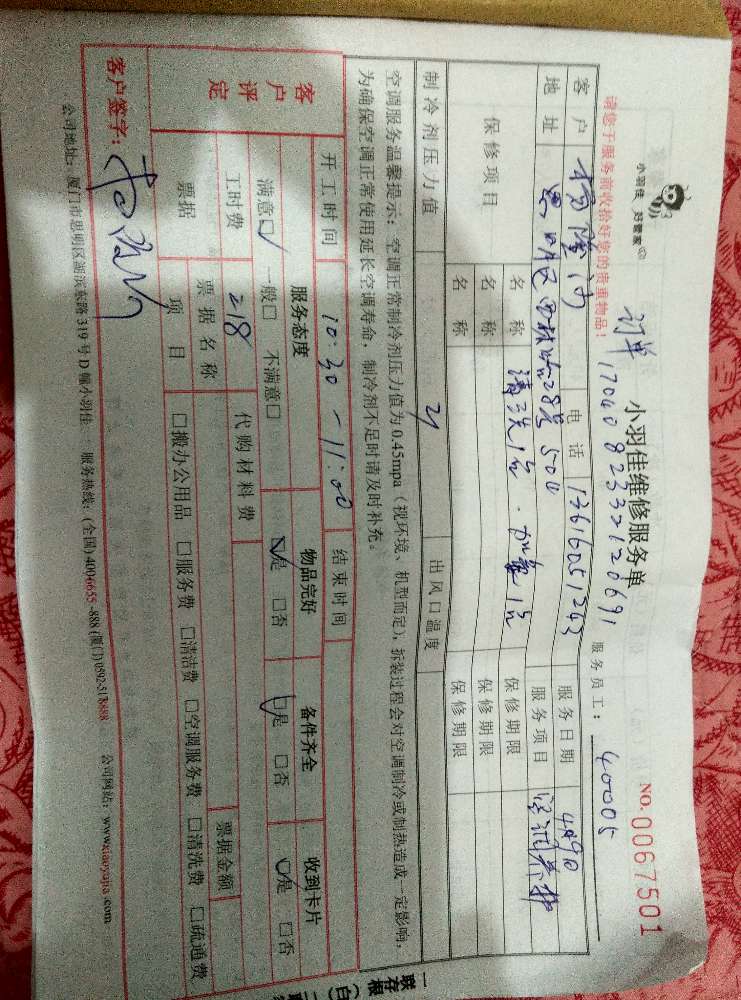 小羽佳 好管家
小羽佳维修服务单
NO. 0067501
订单 17040823332120691
服务员工: 40005
请您于服务前收拾好您的贵重物品!
客户 电话 13616051242 服务日期
地址 服务项目 空调养护
保修项目 名称 清洗1台 保修期限
名称 保修期限
名称 保修期限
制冷剂压力值 出风口温度
空调服务温馨提示: 空调正常制冷剂压力值为0.45mpa(视环境、机型而定), 拆装过程会对空调制冷或制热造成一定影响,
为确保空调正常使用延长空调寿命, 制冷剂不足时请及时补充。
开工时间 10:30-11:00 结束时间
客户评定
服务态度 物品完好 备件齐全 收到卡片
满意☑ 一般□ 不满意□ ☑是 □否 ☑是 □否 ☑是 □否
工时费 218 代购材料费
票据 票据名称 票据金额
项目 □搬办公用品 □服务费 □清洁费 □空调服务费 □清洗费 □疏通费
客户签字:
公司地址: 厦门市思明区湖滨东路319号D幢小羽佳 服务热线: (全国)4006655-888 (厦门)0592-5178888 公司网站: www.xiaoyujia.com
一联存根(白)二联